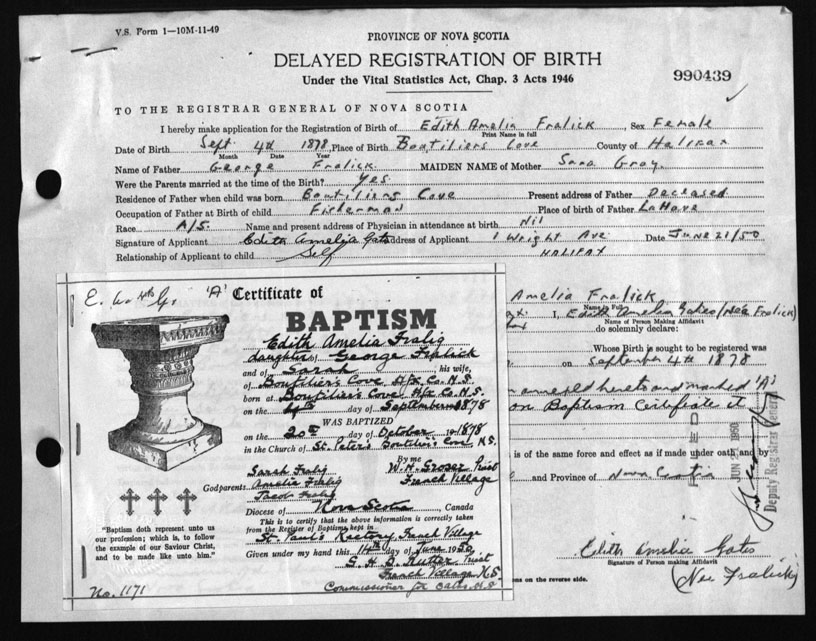 V.S. Form 1—10M-11-49
PROVINCE OF NOVA SCOTIA
DELAYED REGISTRATION OF BIRTH
Under the Vital Statistics Act, Chap. 3 Acts 1946
990439
TO THE REGISTRAR GENERAL OF NOVA SCOTIA
I hereby make application for the Registration of Birth of Edith Amelia Fralick, Sex Female
Print Name in full
Date of Birth Sept. 4th 1878, Place of Birth Boutiliers Cove County of Halifax
Month Date Year
Name of Father George Fralick MAIDEN NAME of Mother Sara Gray
Were the Parents married at the time of the Birth? Yes
Residence of Father when child was born Boutiliers Cove Present address of Father Deceased
Occupation of Father at Birth of child Fisherman Place of birth of Father LaHave
Race A/S. Name and present address of Physician in attendance at birth Nil
Signature of Applicant Edith Amelia Gates address of Applicant 1 Wright Ave Date June 21/50
Relationship of Applicant to child Self HALIFAX
Amelia Fralick
I, Edith Amelia Gates (Nee Fralick)
Name of Person Making Affidavit
do solemnly declare:
Whose Birth is sought to be registered was
on September 4th 1878
annexed hereto and marked 'A'
on Baptism Certificate
is of the same force and effect as if made under oath and by
and Province of Nova Scotia
JUN 1950
Deputy Registrar General
Edith Amelia Gates
Signature of Person making Affidavit
(Nee Fralick)
ons on the reverse side.
'A'
Certificate of
BAPTISM
Edith Amelia Fralig
daughter of George Fralick
and of Sarah his wife,
of Boutilier's Cove Hfx Co. N.S.
born at Boutilier's Cove Hfx Co. N.S.
on the 4th day of September 1878
WAS BAPTIZED
on the 20th day of October 1878
in the Church of St. Peter's Boutilier's Cove N.S.
By me
Sarah Fralig W. H. Groser Priest
Godparents Amelia Fralig French Village
Jacob Fralig
Diocese of Nova Scotia Canada
This is to certify that the above information is correctly taken
from the Register of Baptisms kept in
St. Paul's Rectory French Village
Given under my hand this 14th day of June 1950
G. H. Priest
French Village N.S.
Commissioner for Oaths N.S.
"Baptism doth represent unto us
our profession; which is, to follow
the example of our Saviour Christ,
and to be made like unto him."
No. 1171